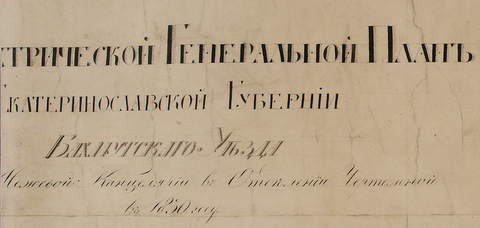 ТРИЧЕСКОЙ ГЕНЕРАЛЬНОЙ ПЛАНЪ
КАТЕРИНОСЛАВСКОЙ ГУБЕРНІИ
БАХМУТСКАГО УѢЗДА
Межевой Канцеляріи въ Отделеніи Чертежной
въ 1830 году